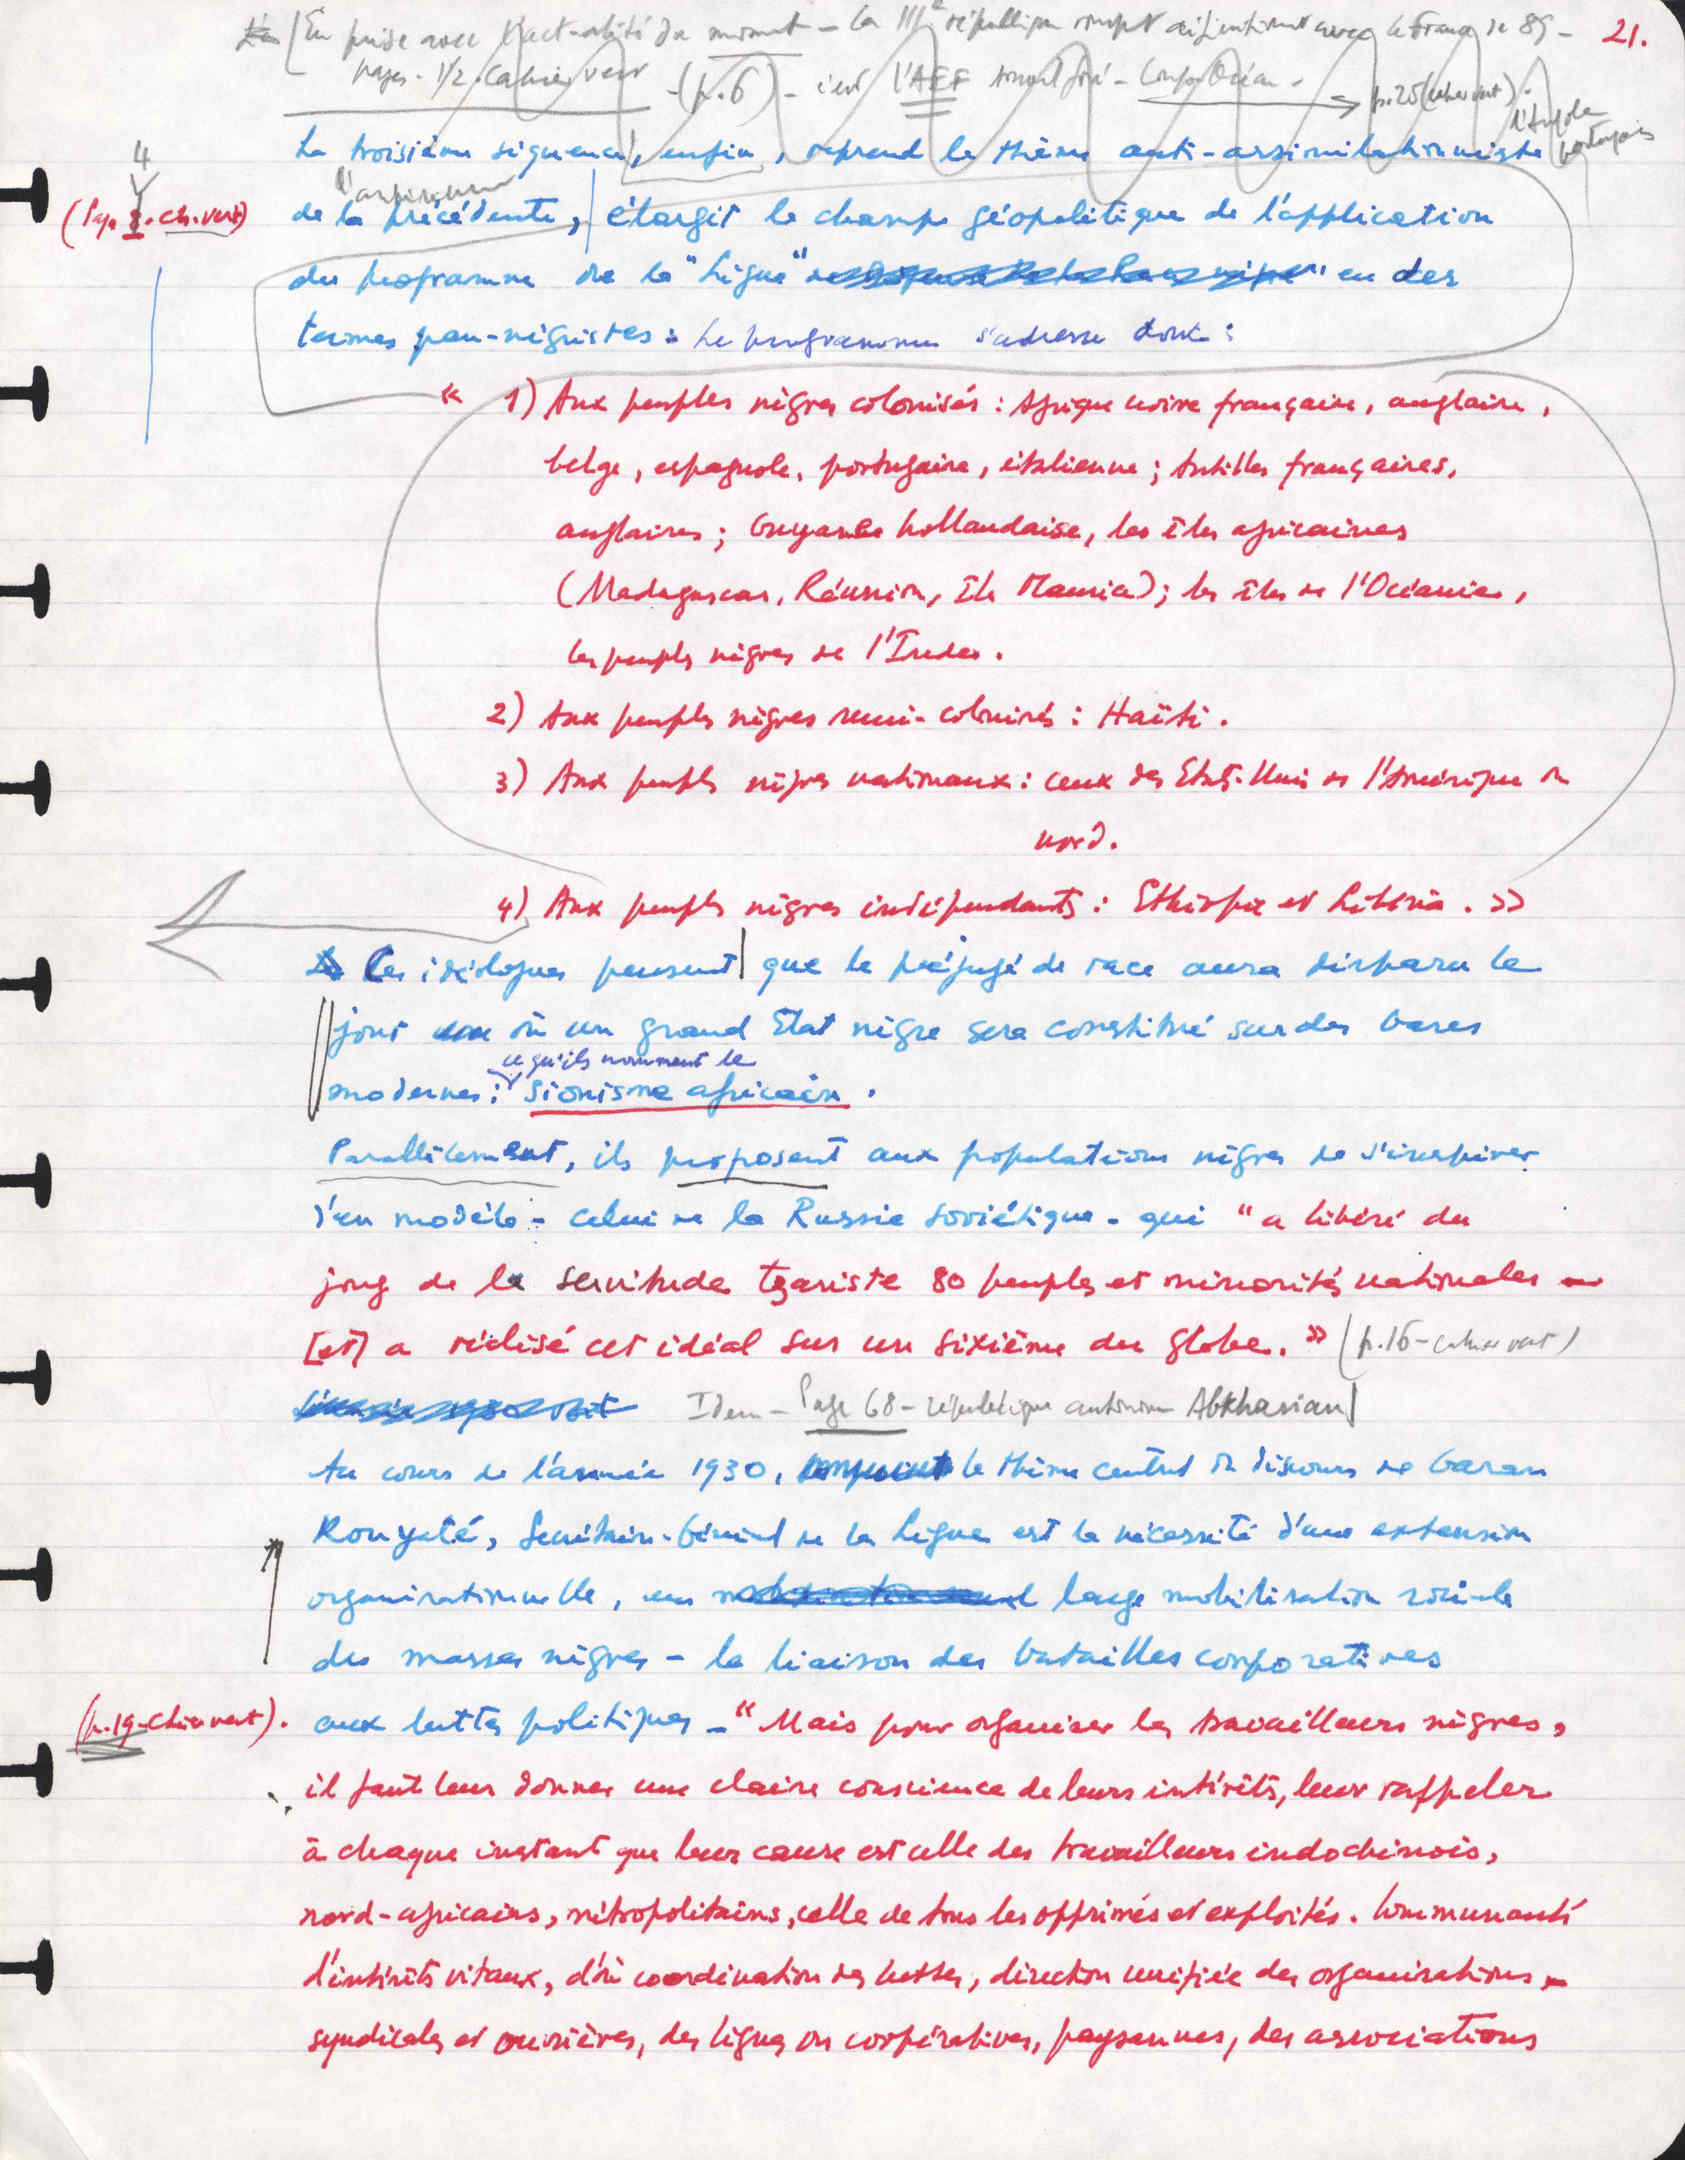 En prise avec l'actualité du moment - la IIIe république rompt avec la France de 89 -
21.
pages 1/2 cahier vert - (p. 6) - c'est l'AEF Congo Océan - p. 25 (cahier vert).
l'Angola portugais
La troisième séquence, enfin, reprend le thème anti-assimilationniste
4
(Page 8. ch. vert) de la précédente, élargit le champ géopolitique de l'application
du programme de la "Ligue" en des
termes pan-nigristes : Le programme s'adresse donc :
« 1) Aux peuples nègres colonisés : Afrique noire française, anglaise,
belge, espagnole, portugaise, italienne ; Antilles françaises,
anglaises ; Guyane hollandaise, les îles africaines
(Madagascar, Réunion, Île Maurice) ; les îles de l'Océanie,
les peuples nègres de l'Indes.
2) Aux peuples nègres semi-colonisés : Haïti.
3) Aux peuples nègres nationaux : ceux des Etats-Unis de l'Amérique du
nord.
4) Aux peuples nègres indépendants : Ethiopie et Libéria. »
Ces idéologues pensent que le préjugé de race aura disparu le
jour où un grand Etat nègre sera constitué sur des bases
ce qu'ils nomment le
modernes : Sionisme africain.
Parallèlement, ils proposent aux populations nègres de s'inspirer
d'un modèle - celui de la Russie soviétique - qui "a libéré du
joug de la servitude tzariste 80 peuples et minorités nationales -
[et] a réalisé cet idéal sur un sixième du globe. » (p. 16 - cahier vert)
Idem - Page 68 - république autonome Abkhasian
Au cours de l'année 1930, le thème central du discours de Garan
Kouyaté, Secrétaire-Général de la Ligue est la nécessité d'une extension
organisationnelle, une large mobilisation sociale
des masses nègres - la liaison des batailles corporatives
(p. 19 - cahier vert). aux luttes politiques - "Mais pour organiser les travailleurs nègres,
il faut leur donner une claire conscience de leurs intérêts, leur rappeler
à chaque instant que leur cause est celle des travailleurs indochinois,
nord-africains, métropolitains, celle de tous les opprimés et exploités. Communauté
d'intérêts vitaux, d'où coordination des luttes, direction unifiée des organisations
syndicales et ouvrières, des ligues ou coopératives, paysannes, des associations